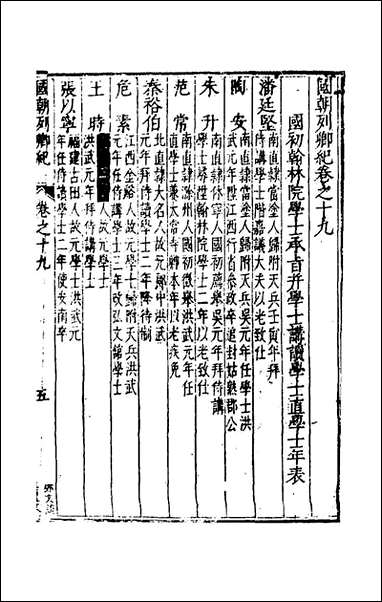 國朝列卿紀卷之十九
國初翰林院學士承旨并學士講讀學士直學士年表
潘廷堅
南直隸當塗人歸附天兵壬寅年拜
侍講學士階嘉議大夫以老致仕
陶安
南直隸當塗人歸附天兵吳元年任學士洪
武元年陞江西行省參政卒追封姑熟郡公
朱升
南直隸休寧人國初薦舉吳元年拜侍講
學士尋陞翰林院學士二年以老致仕
范常
南直隸滁州人國初徵舉洪武元年任
直學士兼太常寺
秦裕伯
北直隸大名人故元
元年拜侍讀學士二年降待制
危素
江西金谿人故元學士歸附天兵洪武
元年任侍講學士三年改弘文館學士
王時
人故元學士
洪武元年拜侍講學士
張以寧
福建古田人故元學士洪武元
年任侍讀學士二年使安南卒
國朝列卿紀
卷之十九
五